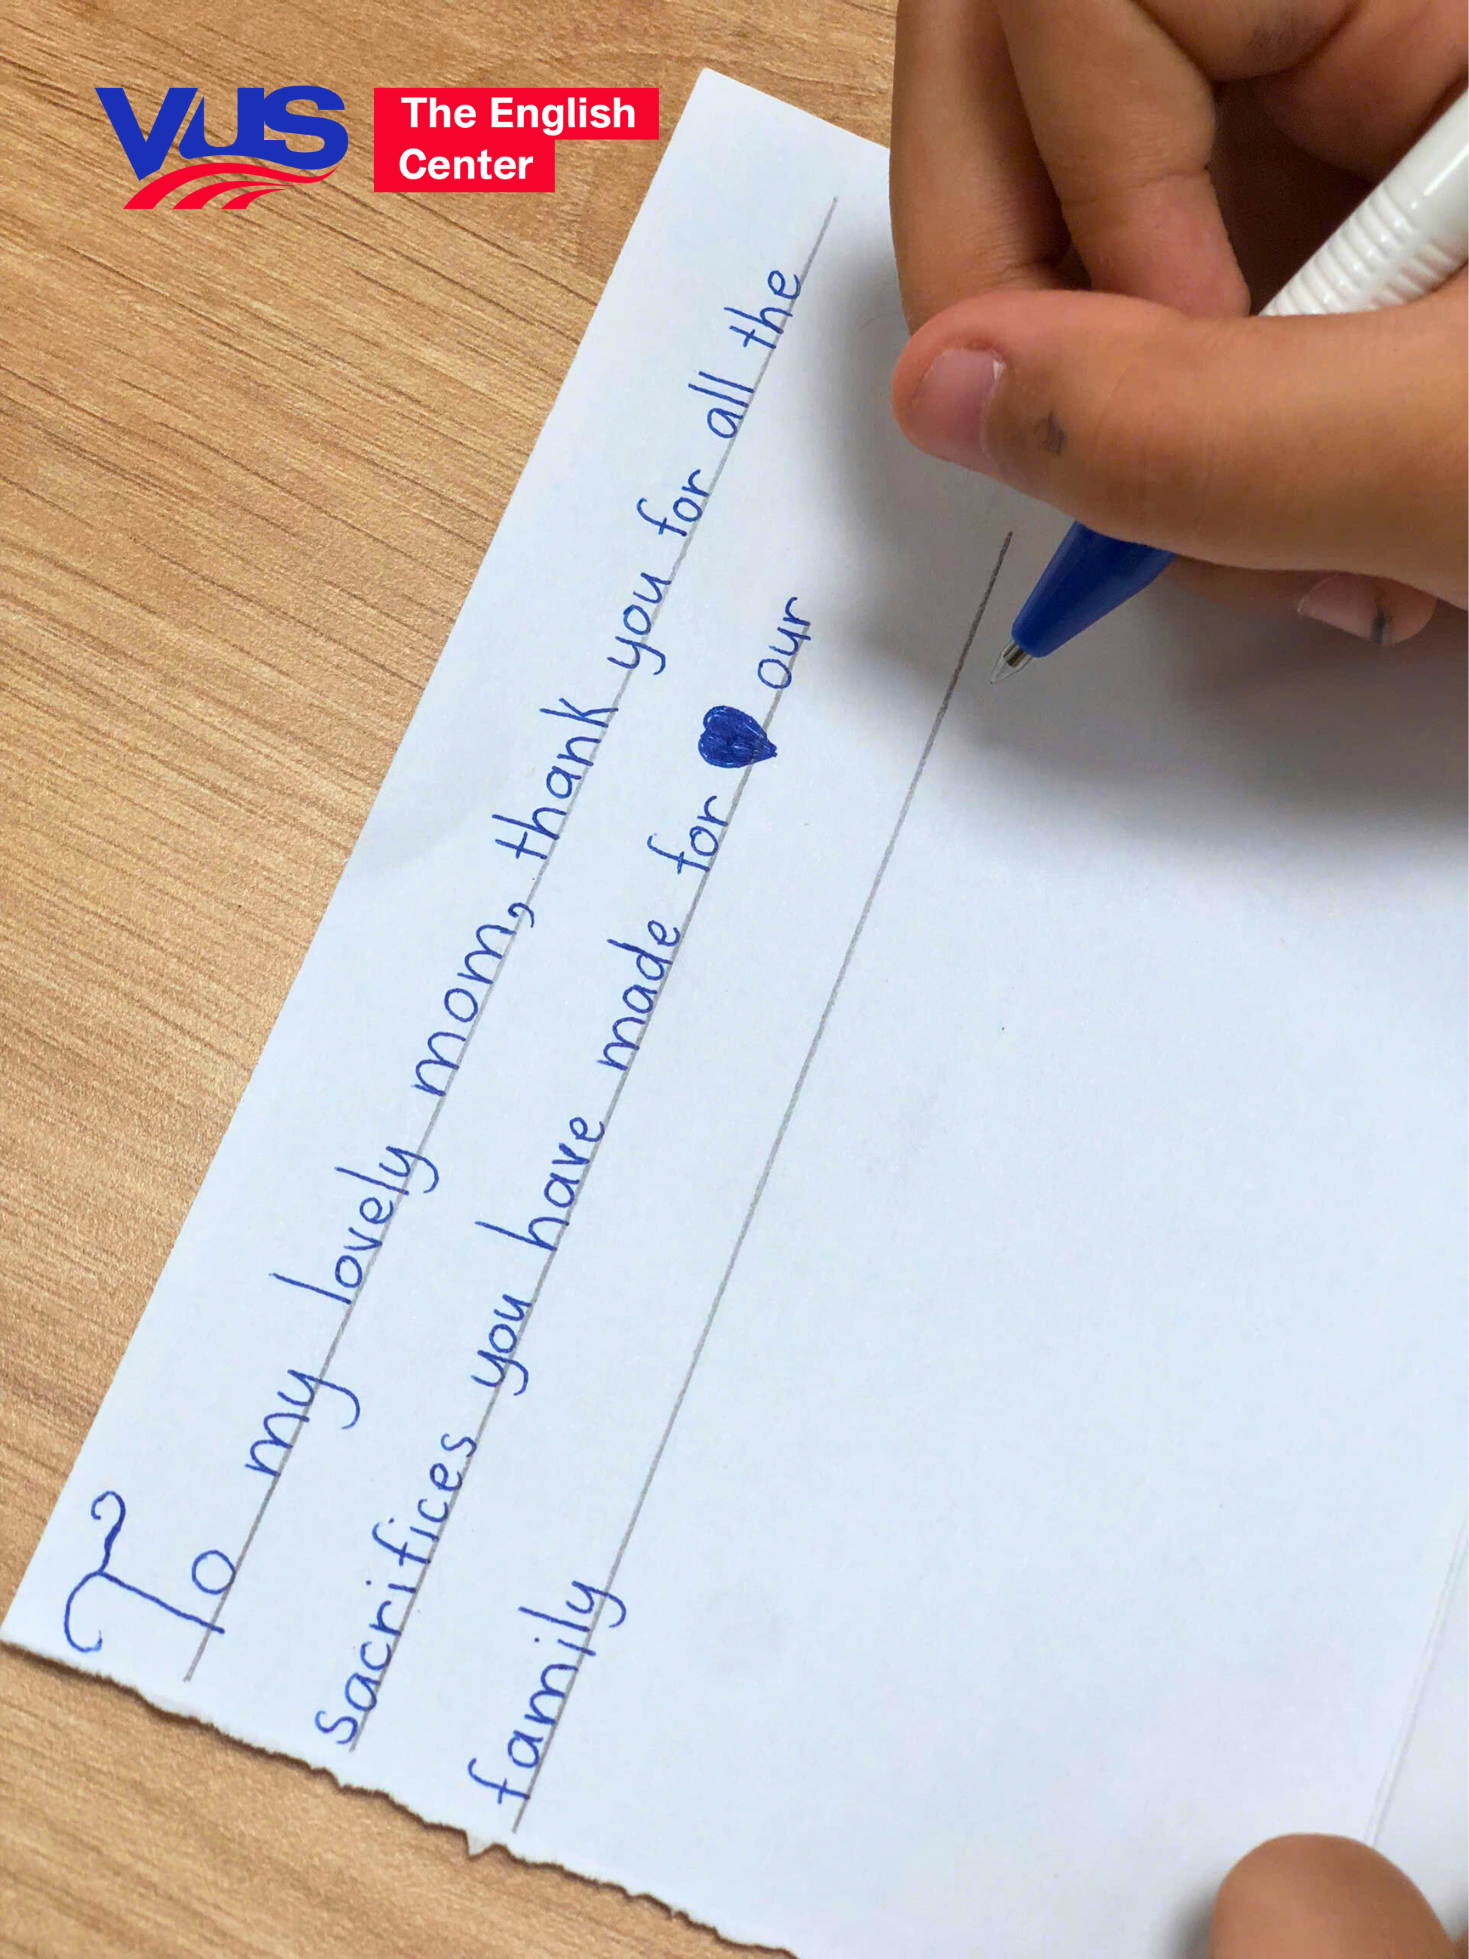 VUS The English
Center
To my lovely mom, thank you for all the
sacrifices you have made for our
family